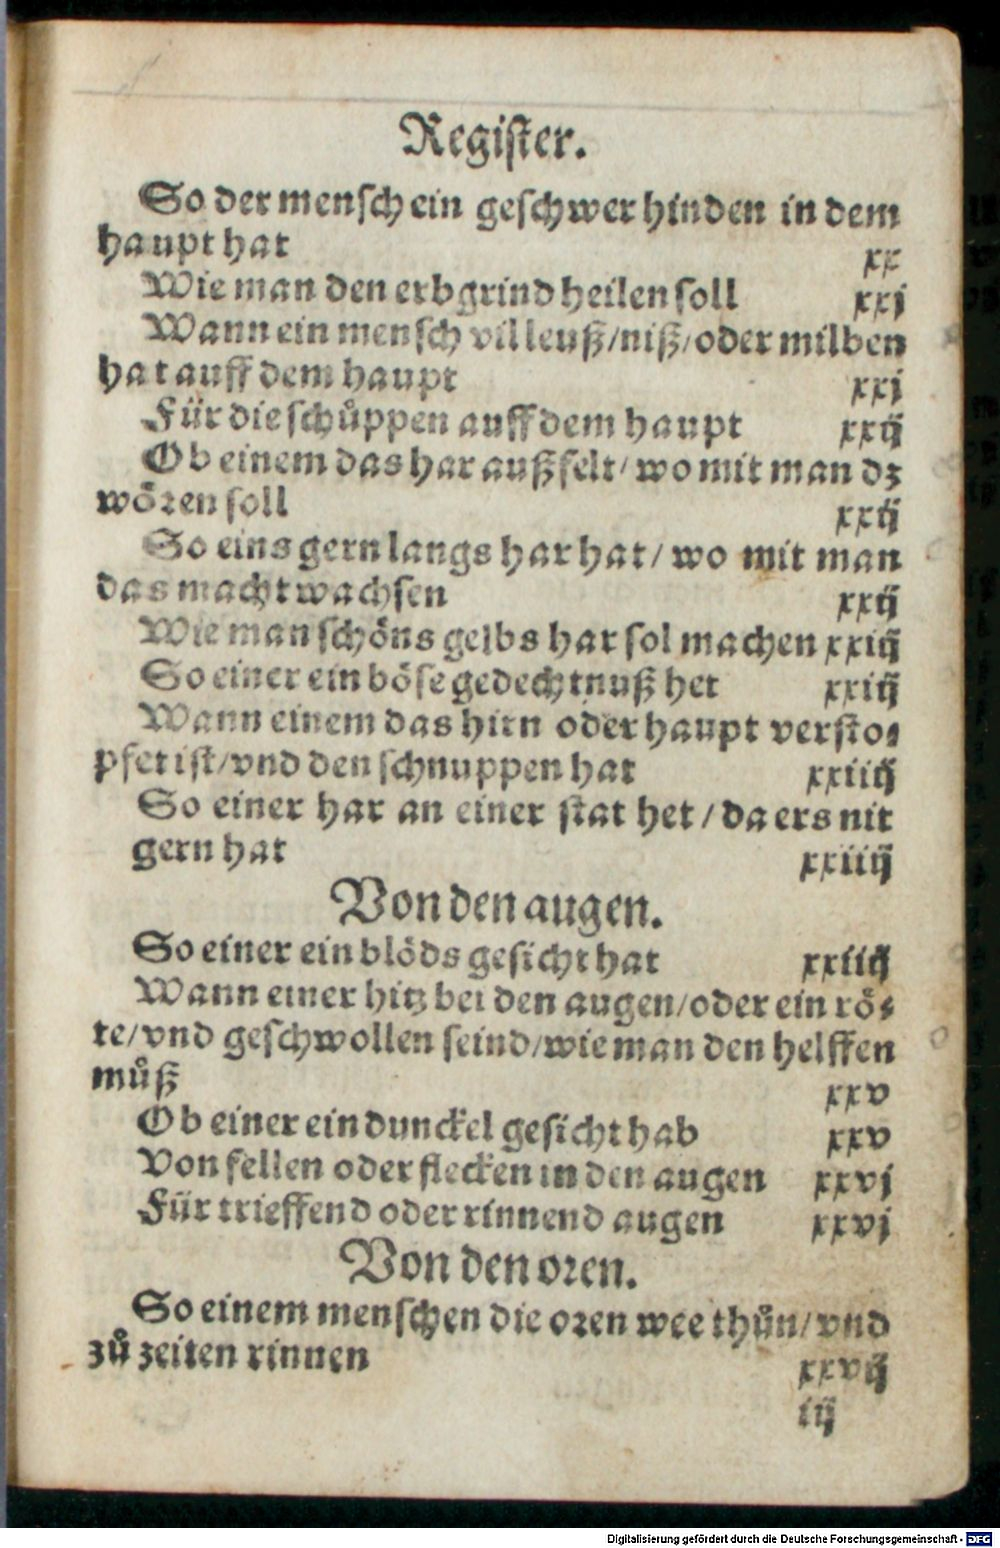 Register.
So der mensch ein geschwer hinden in dem
haupt hat xx
Wie man den erbgrind heilen soll xxj
Wann ein mensch vil leuß/niß/oder milben
hat auff dem haupt xxj
Für die schůppen auff dem haupt xxij
Ob einem das har außfelt/wo mit man dz
wören soll xxij
So eins gern langs har hat/wo mit man
das macht wachsen xxij
Wie man schöns gelbs har sol machen xxiij
So einer ein böse gedechtnuß het xxiij
Wann einem das hirn oder haupt versto⸗
pfet ist/vnd den schnuppen hat xxiiij
So einer har an einer stat het/da ers nit
gern hat xxiiij
Von den augen.
So einer ein blöds gesicht hat xxiiij
Wann einer hitz bei den augen/oder ein rö⸗
te/vnd geschwollen seind/wie man den helffen
můß xxv
Ob einer ein dunckel gesicht hab xxv
Von fellen oder flecken in den augen xxvj
Für trieffend oder rinnend augen xxvj
Von den oren.
So einem menschen die oren wee thůn/vnd
zů zeiten rinnen xxvij
iij
Digitalisierung gefördert durch die Deutsche Forschungsgemeinschaft - DFG